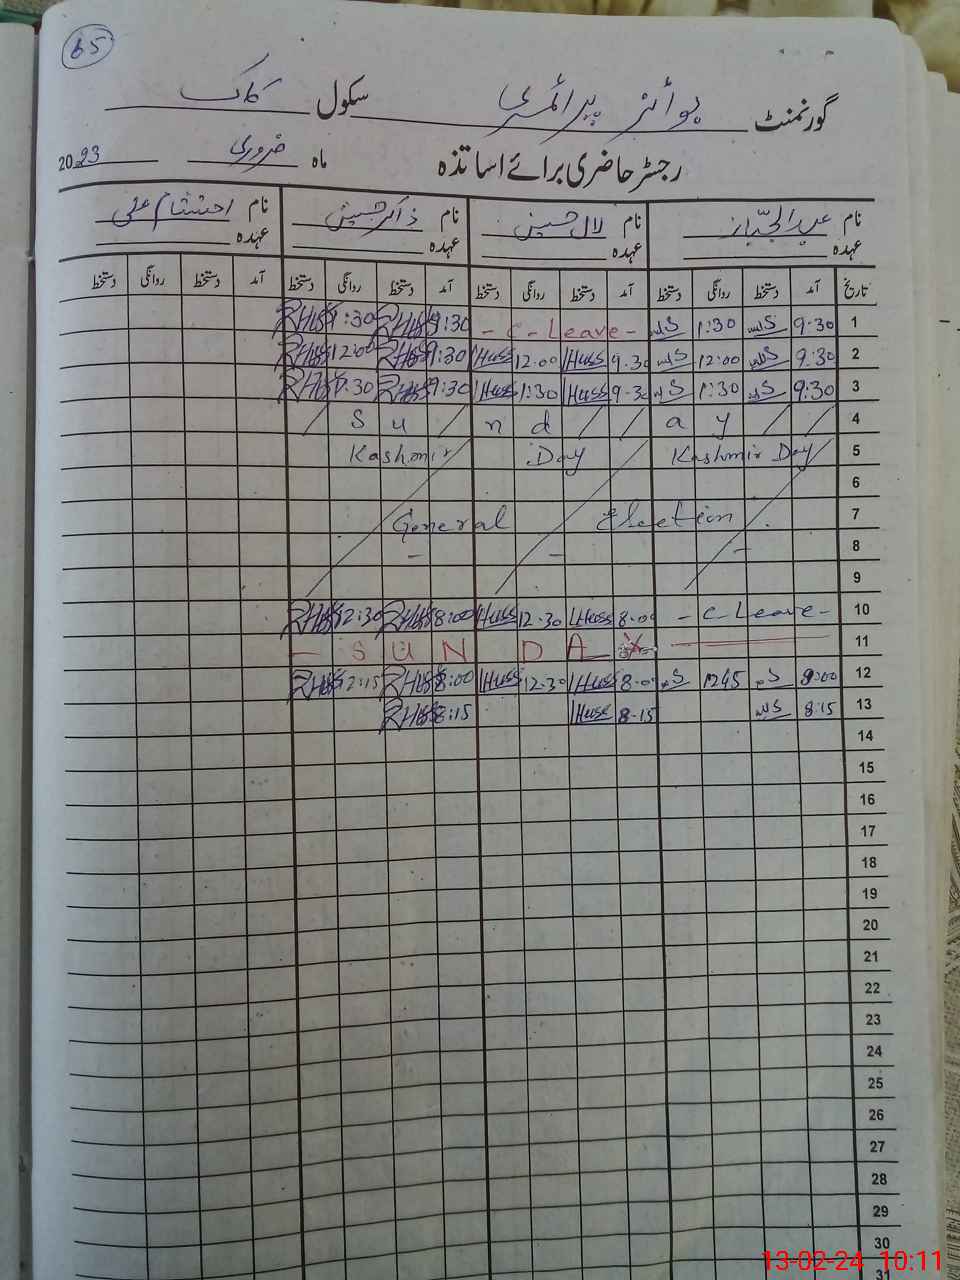 65
گورنمنٹ بوائز پرائمری سکول
رجسٹر حاضری برائے اساتذہ ماہ فروری 2023
نام عبدالجبار نام لال حسین نام ذاکر حسین نام احتشام علی
عہدہ عہدہ عہدہ عہدہ
تاریخ آمد دستخط روانگی دستخط آمد دستخط روانگی دستخط آمد دستخط روانگی دستخط آمد دستخط روانگی دستخط
1:30 9:30 - C - Leave - 1:30 9-30 1
12:00 9:30 Huss 12:00 Huss 9.30 12:00 9:30 2
1:30 9:30 Huss 1:30 Huss 9-30 1:30 9:30 3
S u n d a y 4
Kashmir Day Kashmir Day 5
6
General Election 7
8
9
12:30 8:00 Huss 12.30 Huss 8.00 - C - Leave - 10
- S U N D A 11
12:15 8:00 Huss 12.30 Huss 8.00 1245 8:00 12
8:15 Huss 8-15 8:15 13
14
15
16
17
18
19
20
21
22
23
24
25
26
27
28
29
30
31
13-02-24 10:11